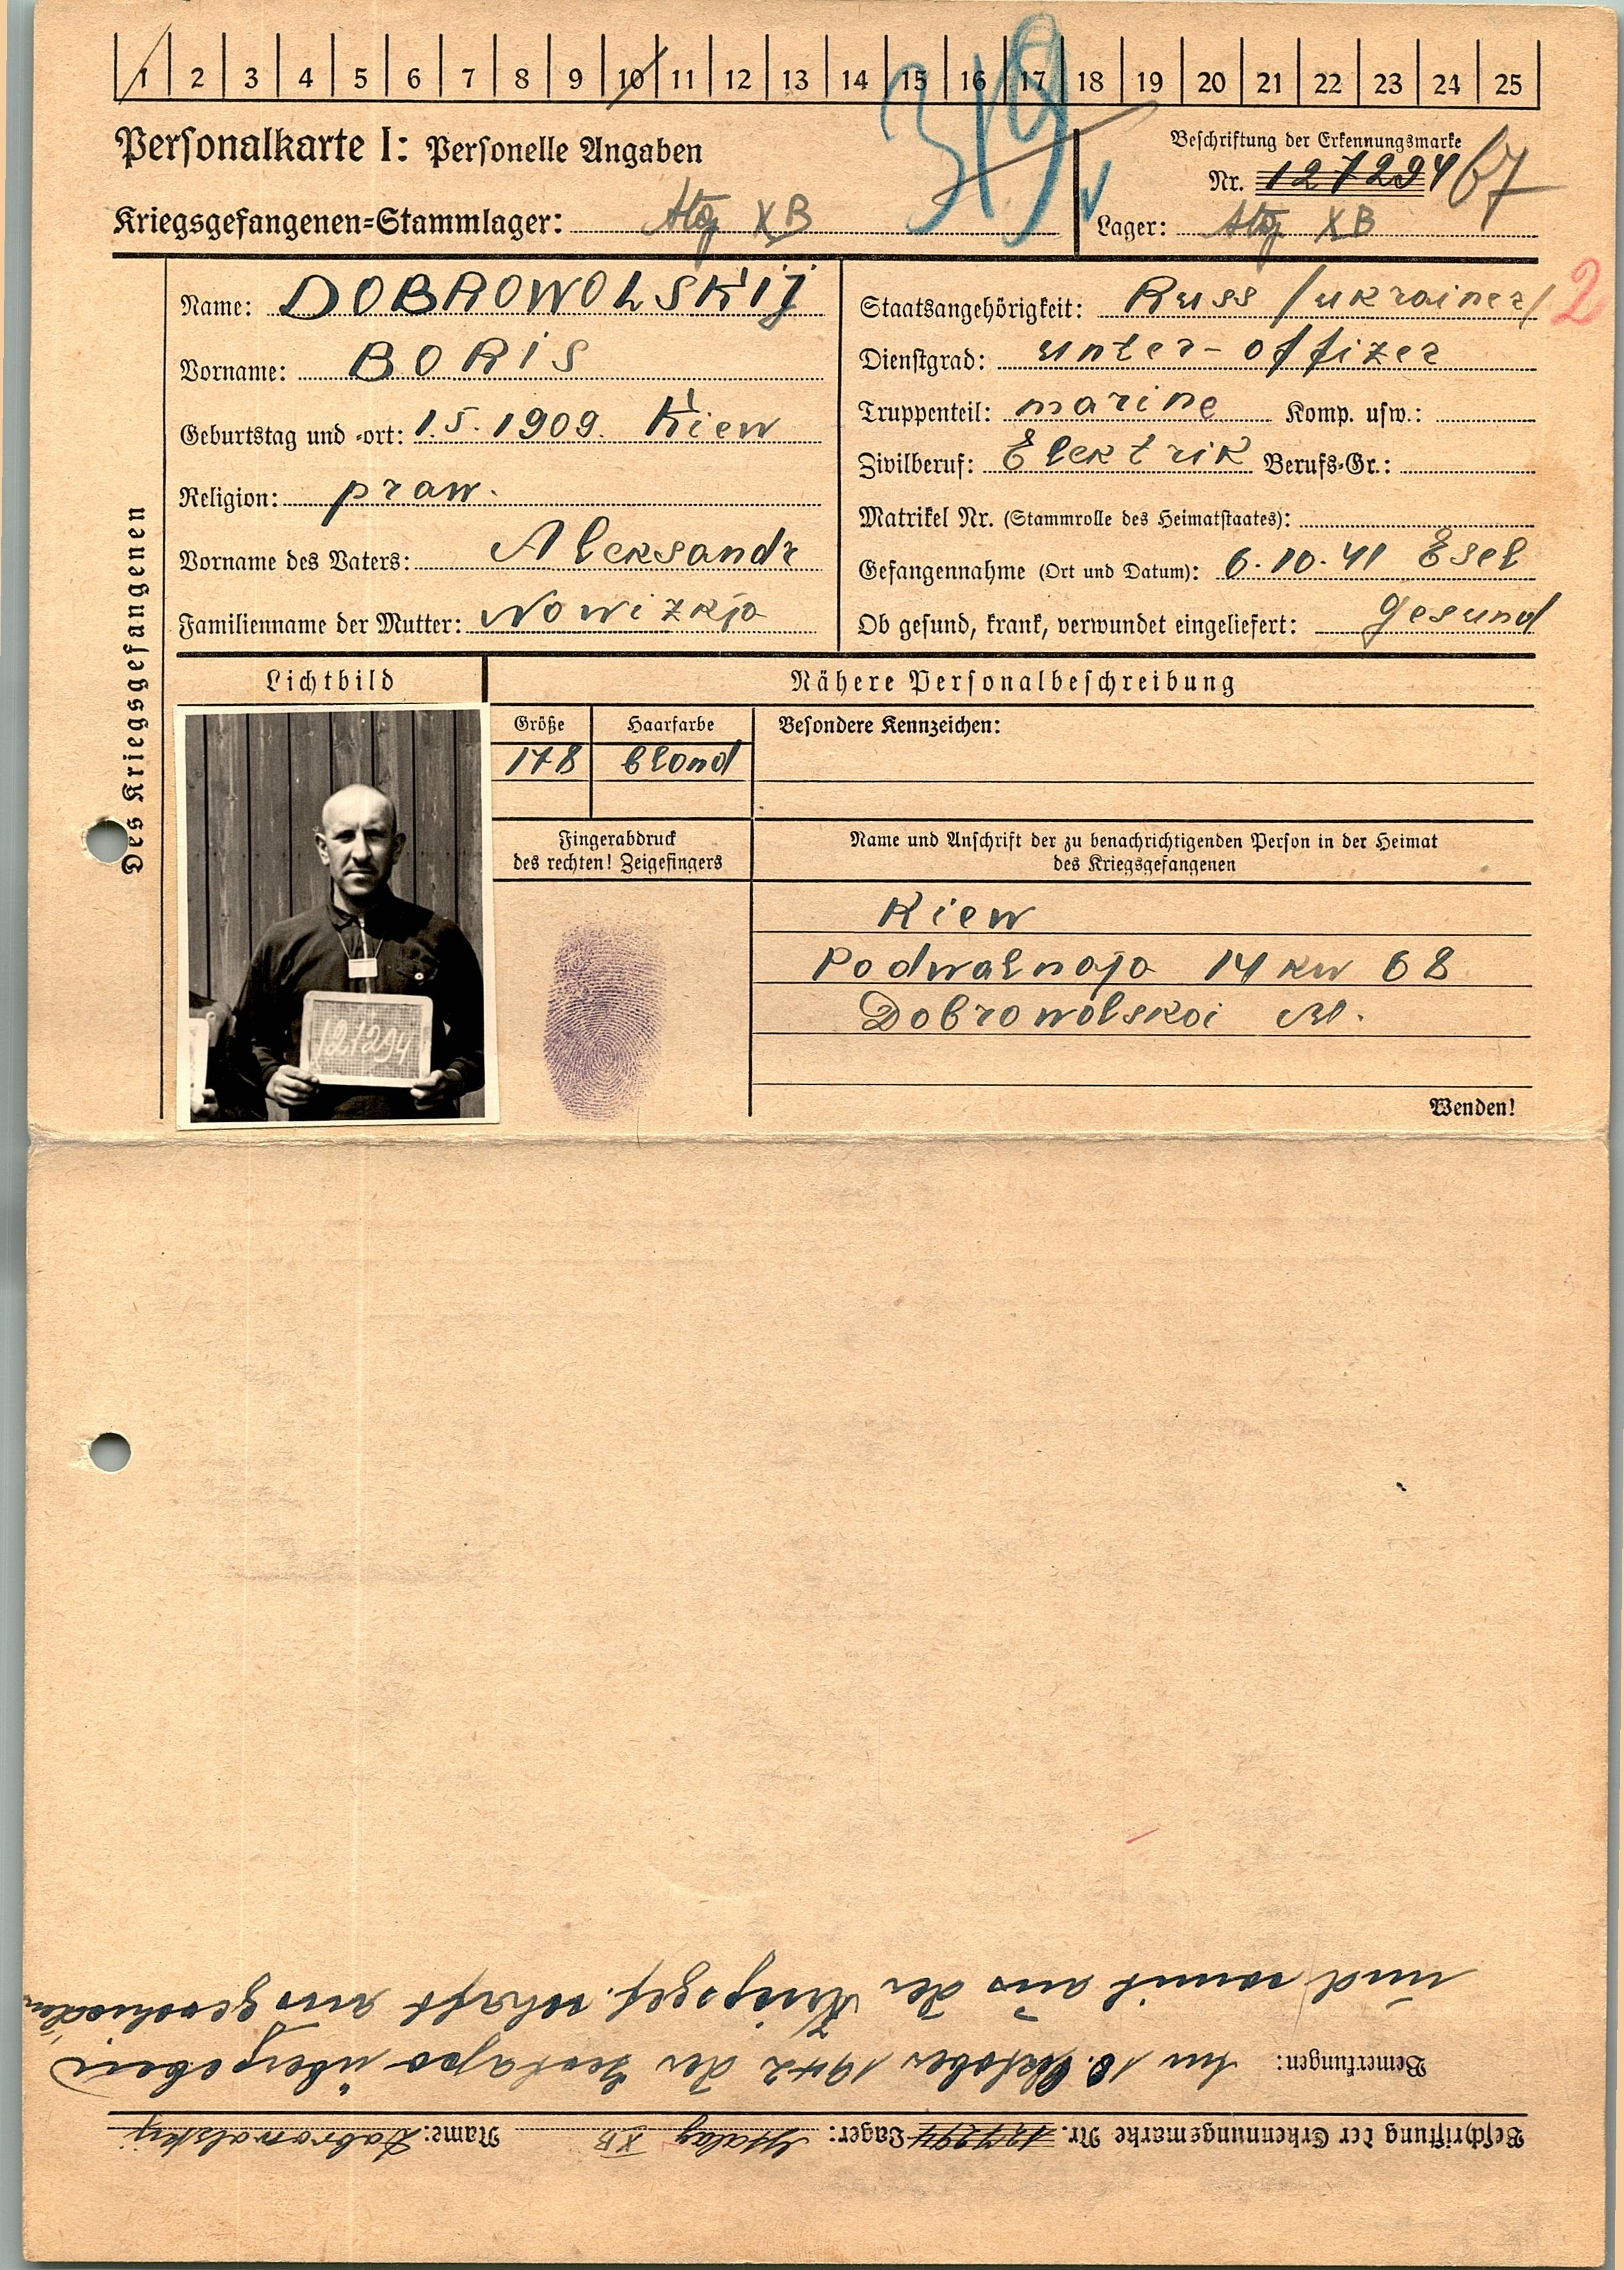 1 2 3 4 5 6 7 8 9 10 11 12 13 14 15 16 17 18 19 20 21 22 23 24 25
319
Personalkarte I: Personelle Angaben
Beschriftung der Erkennungsmarke
Nr. 127294 67
Kriegsgefangenen=Stammlager: Stlg XB
Lager: Stlg XB
Des Kriegsgefangenen
Name: DOBROWOLSKIJ
Vorname: BORIS
Geburtstag und -ort: 1.5.1909. Kiew
Religion: praw.
Vorname des Vaters: Aleksandr
Familienname der Mutter: Nowizkja
Staatsangehörigkeit: Russ /ukrainer/ 2
Dienstgrad: unter-offizer
Truppenteil: marine Komp. usw.:
Zivilberuf: Elektrik Berufs-Gr.:
Matrikel Nr. (Stammrolle des Heimatstaates):
Gefangennahme (Ort und Datum): 6.10.41 Esel
Ob gesund, krank, verwundet eingeliefert: Gesund
Lichtbild
Nähere Personalbeschreibung
Größe Haarfarbe Besondere Kennzeichen:
178 blond
127294
Fingerabdruck
des rechten! Zeigefingers
Name und Anschrift der zu benachrichtigenden Person in der Heimat
des Kriegsgefangenen
Kiew
Podwalnaja 14 kw 68
Dobrowolskoi M.
Wenden!
Beschriftung der Erkennungsmarke Nr. 127294 Lager: Stalag XB Name: Dobrowolskij
Bemerkungen: Am 18. Oktober 1942 der Gestapo übergeben
und somit aus der Kriegsgef.schaft ausgeschieden.